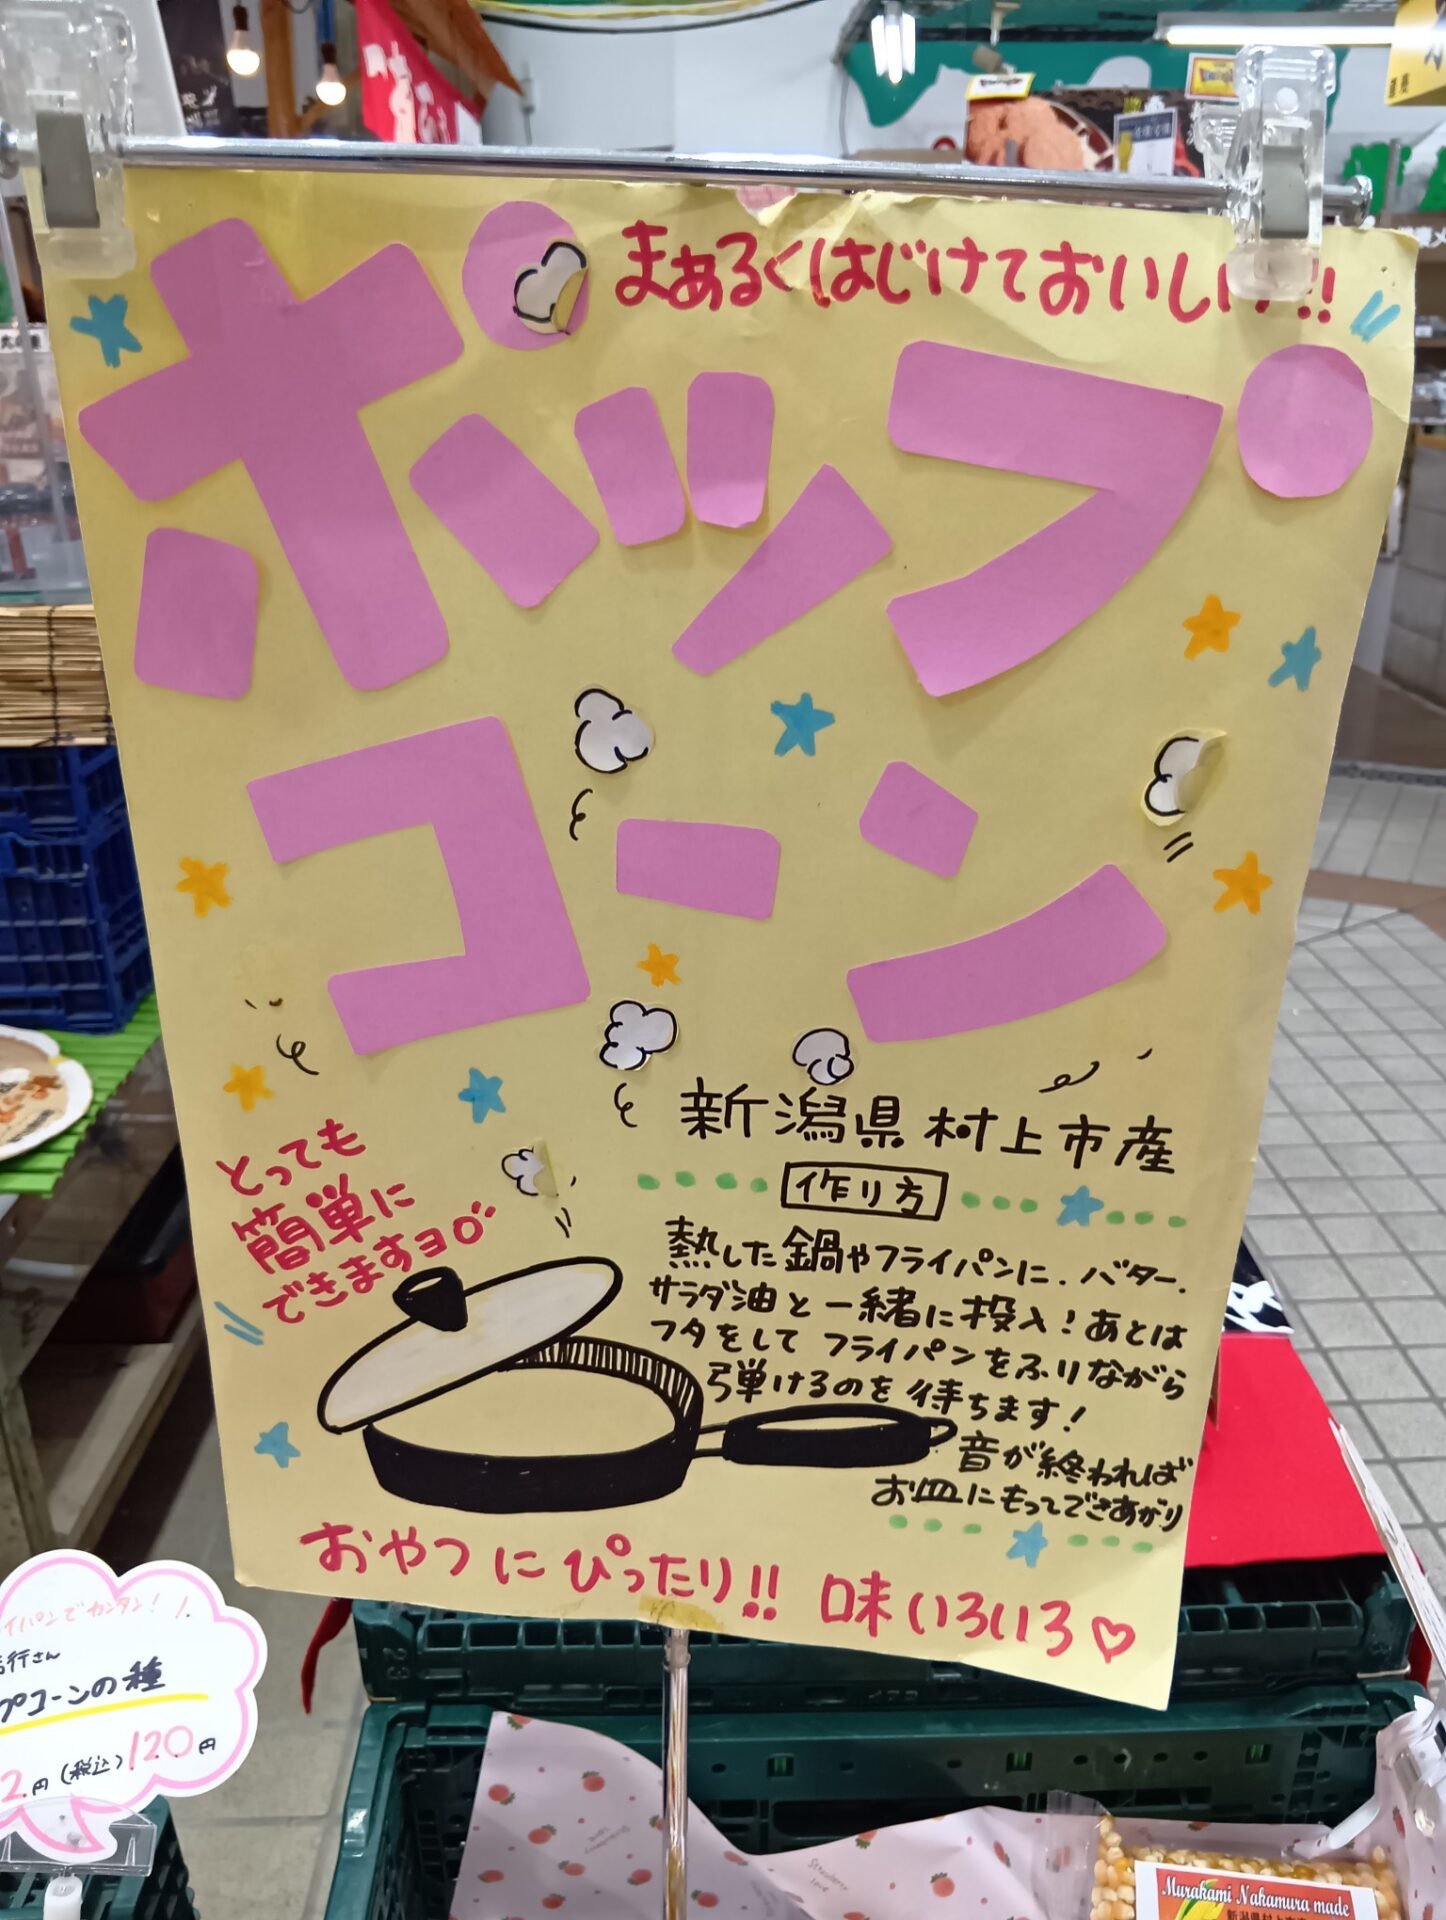 まぁるくはじけておいしい!!
ポップ
コーン
新潟県村上市産
とっても
簡単に
できますヨ
作り方
熱した鍋やフライパンに、バター、
サラダ油と一緒に投入!あとは
フタをして フライパンをふりながら
弾けるのを待ちます!
音が終われば
お皿にもってできあがり
おやつにぴったり!! 味いろいろ♡
イパンでカンタン!
行さん
プコーンの種
2円(税込)120円
Murakami Nakamura made